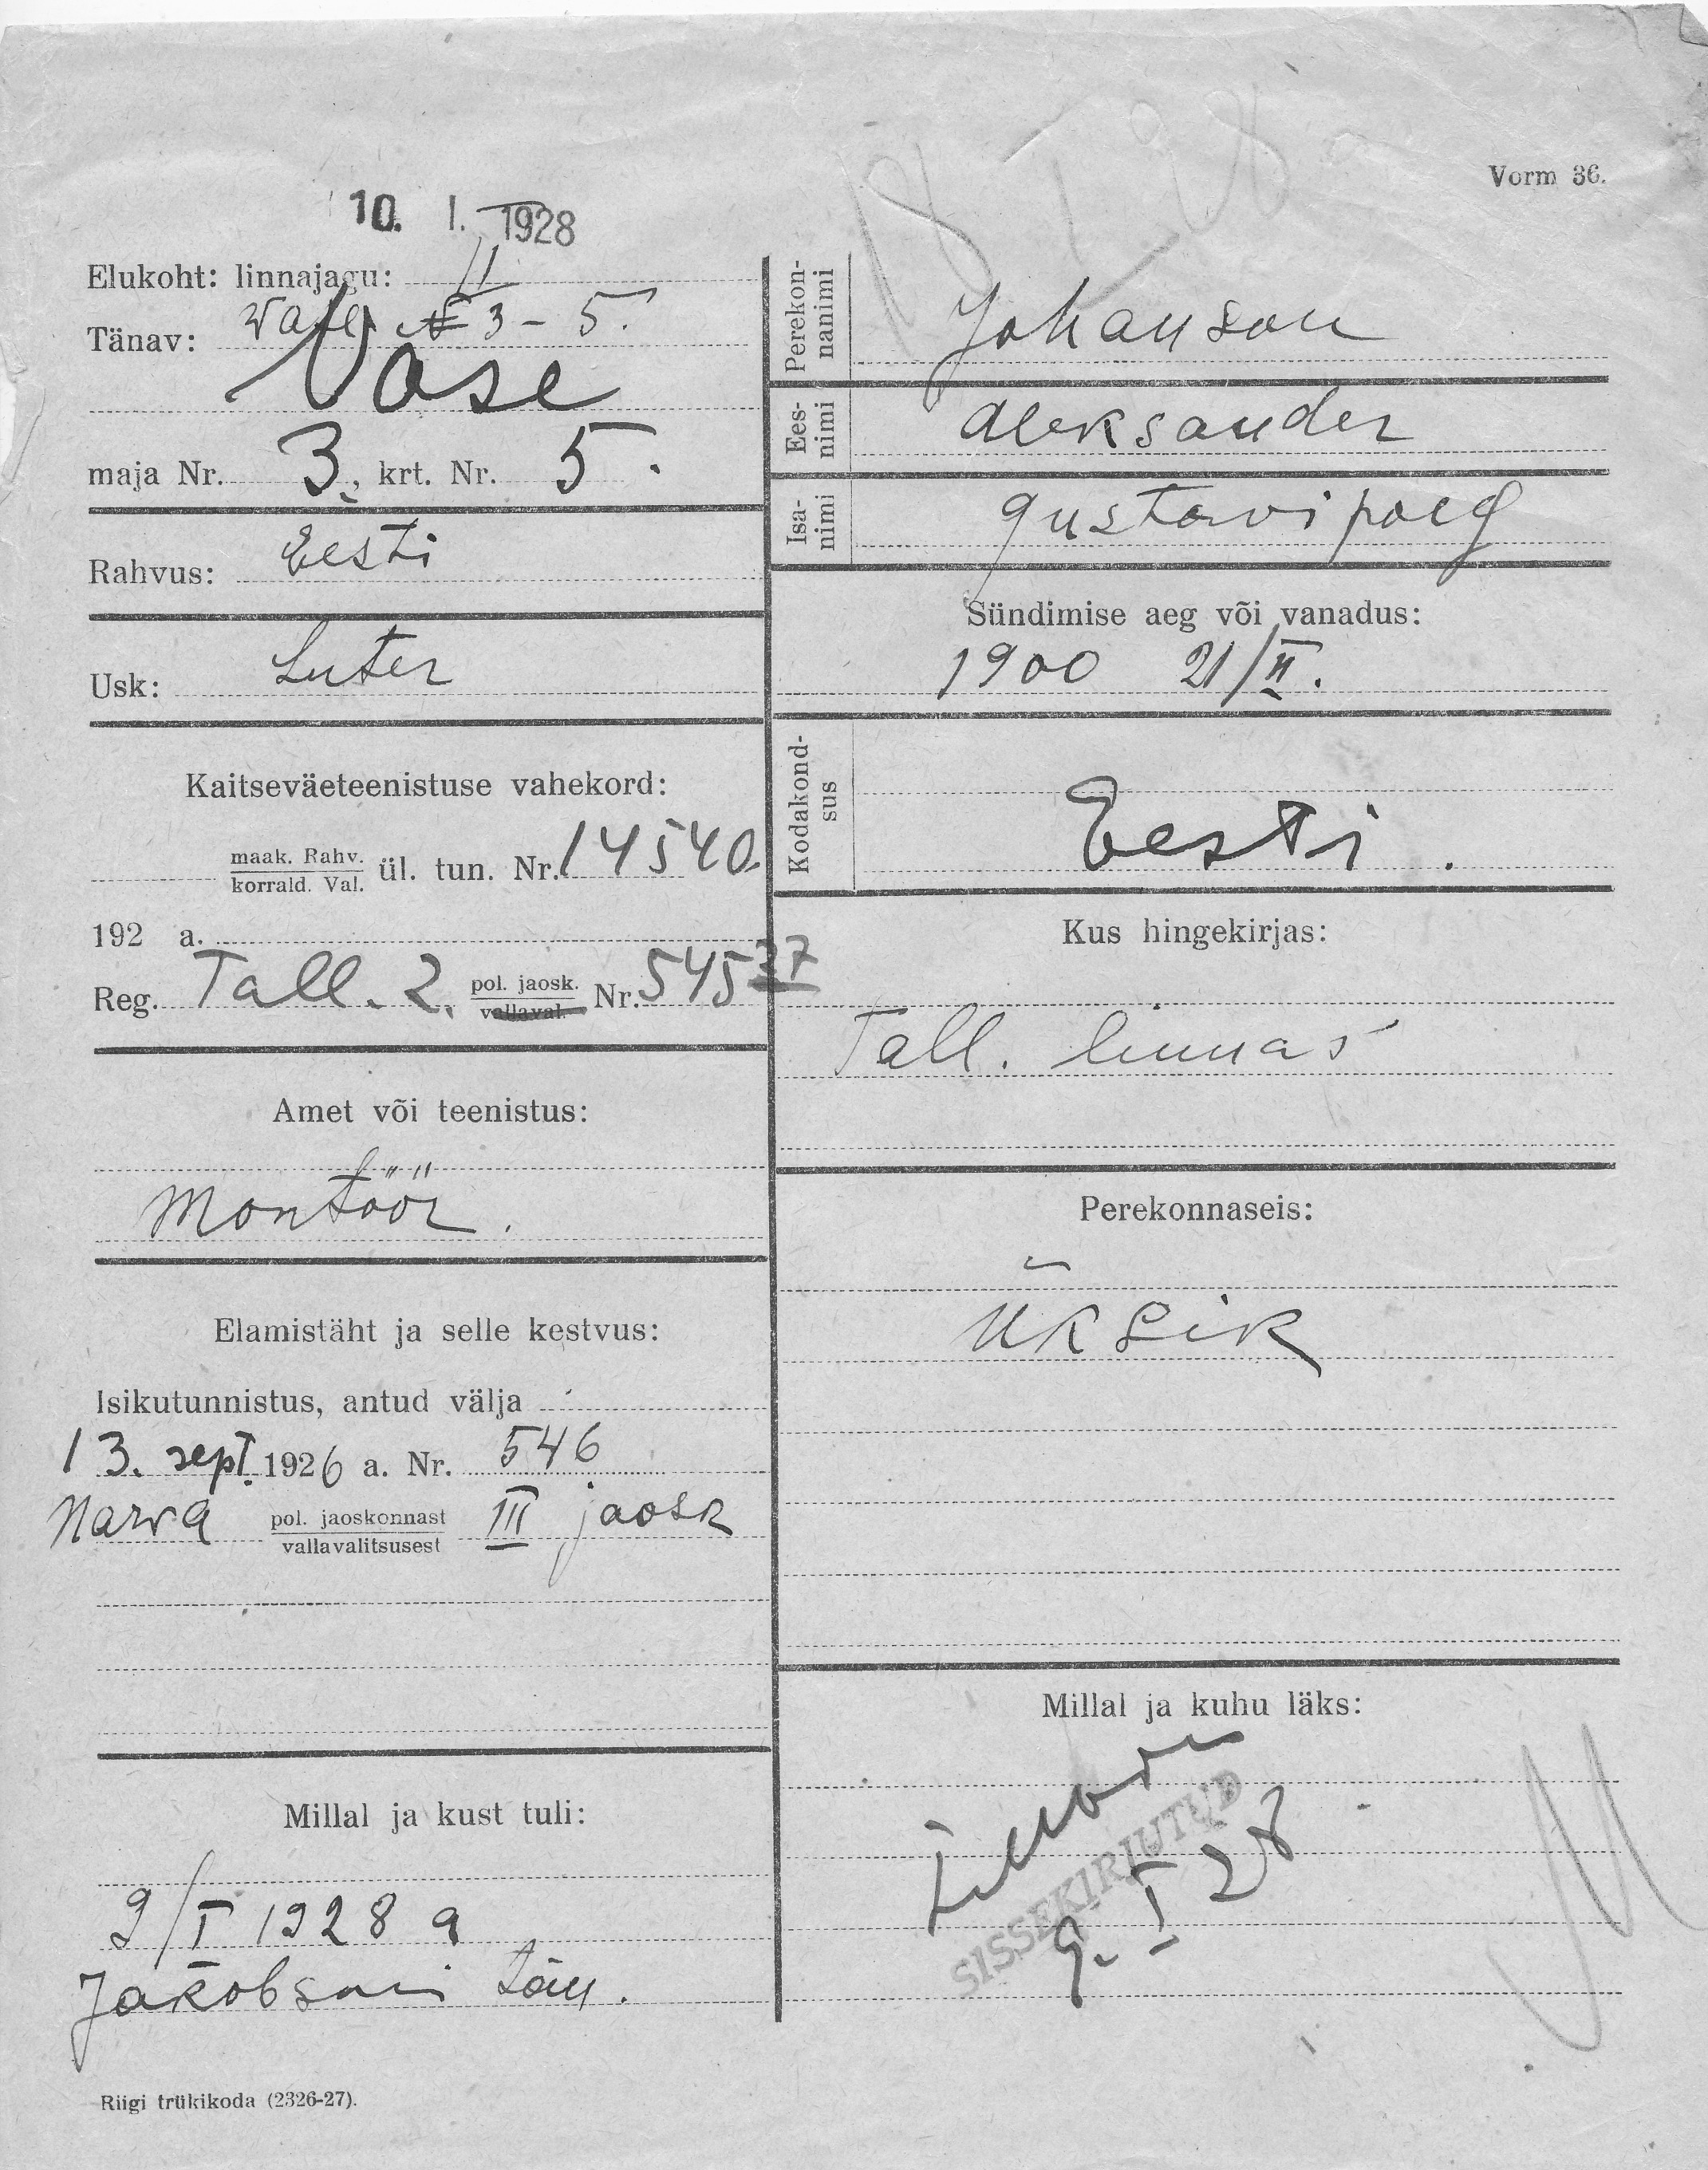 Vorm 36.
10. I. 1928
Elukoht: linnajagu: II
Tänav: № 3 - 5.
Vase
maja Nr. 3, krt. Nr. 5.
Rahvus: Eesti
Usk: Luter
Kaitseväeteenistuse vahekord:
maak. Rahv.
korrald. Val.
ül. tun. Nr. 14540.
192 a.
Reg. Tall. 2. pol. jaosk. Nr. 54537
vallaval.
Amet või teenistus:
Montöör.
Elamistäht ja selle kestvus:
Isikutunnistus, antud välja
13. sept. 1926 a. Nr. 546
Narva pol. jaoskonnast III jaosk
vallavalitsusest
Millal ja kust tuli:
9/I 1928 a
Jakobsoni tän.
Riigi trükikoda (2326-27).
Perekon-
nanimi
Johanson
Ees-
nimi
Aleksander
Isa-
nimi
Gustavi poeg
Sündimise aeg või vanadus:
1900 21/II.
Kodakond-
sus
Eesti.
Kus hingekirjas:
Tall. linnas
Perekonnaseis:
Üksik
Millal ja kuhu läks:
SISSEKIRJUTUD
9. I 28